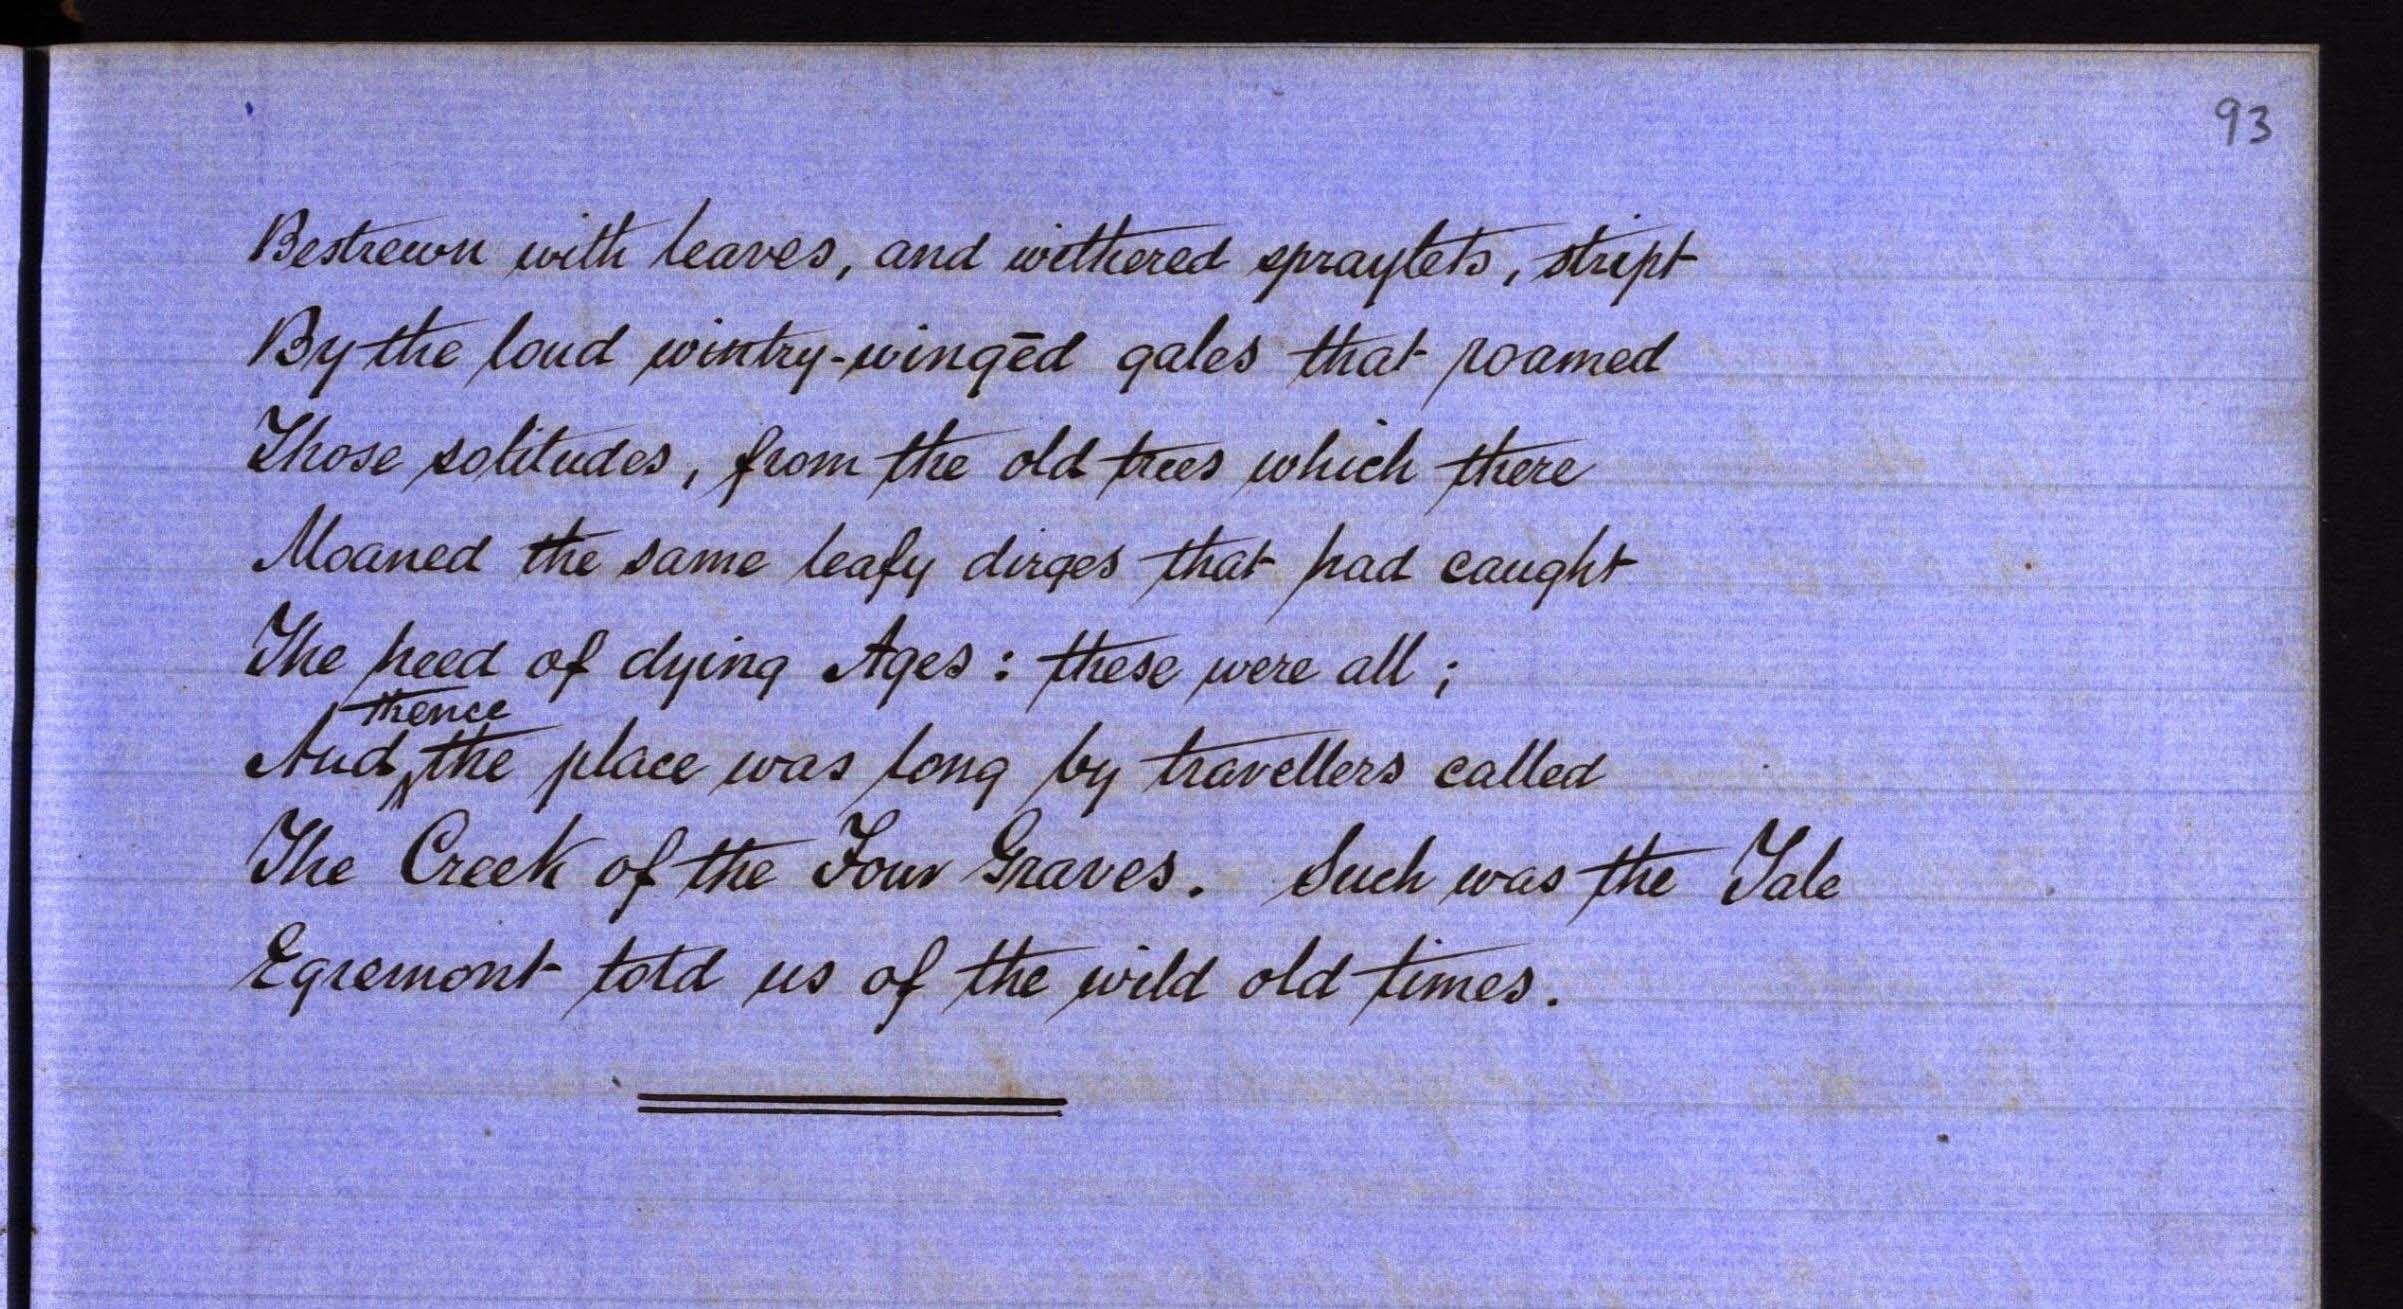 93
Bestrewn with leaves, and withered spraylets, stript
By the loud wintry-wingēd gales that roamed
Those solitudes, from the old trees which there
Moaned the same leafy dirges that had caught
The heed of dying Ages: these were all;
thence
And ‸ the place was long by travellers called
The Creek of the Four Graves. Such was the Tale
Egremont told us of the wild old times.